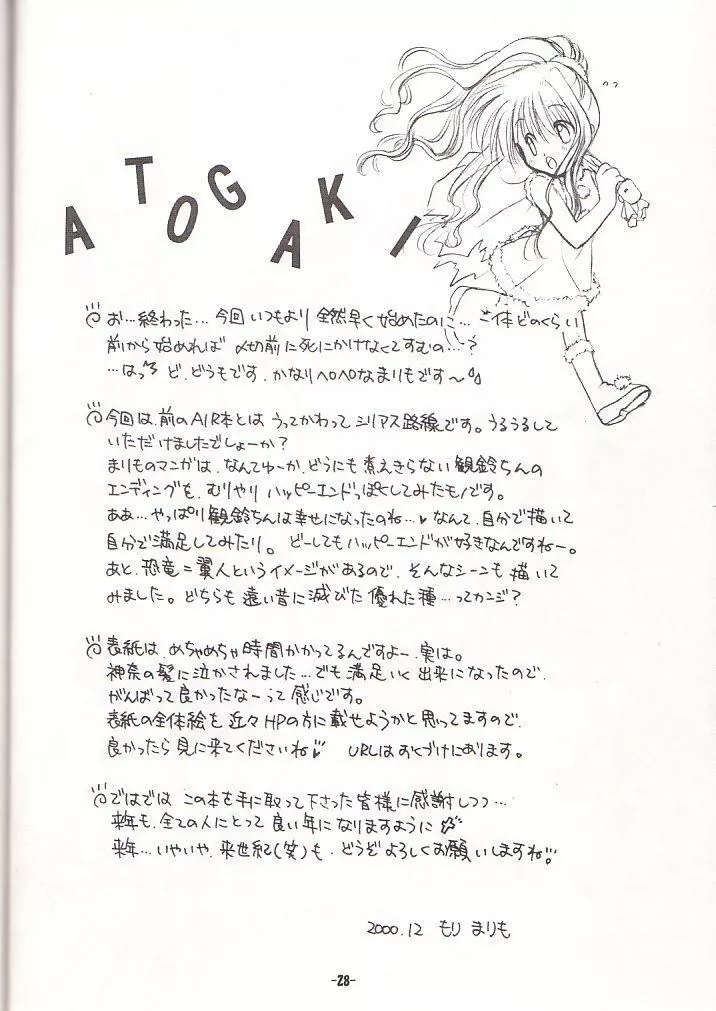 ATOGAKI
お…終わった…今回いつもより全然早く始めたのに…一体どのくらい
前から始めれば〆切前に死にかけなくてすむの…?
…はっ ど、どうもです。かなりヘロヘロなまりもです〜
今回は、前のAIR本とはうってかわってシリアス路線です。うるうるして
いただけましたでしょーか?
まりものマンガは、なんてゅーか、どうにも煮えきらない観鈴ちんの
エンディングを、むりやりハッピーエンドっぽくしてみたものです。
ああ…やっぱり観鈴ちんは幸せになったのね…♥なんて、自分で描いて
自分で満足してみたり。どーしてもハッピーエンドが好きなんですねー。
あと、恐竜=翼人というイメージがあるので、そんなシーンも描いて
みました。どちらも遠い昔に滅びた優れた種…ってカンジ?
表紙は、めちゃめちゃ時間かかってるんですよー、実は。
神奈の髪に泣かされました…でも満足いく出来になったので、
がんばって良かったなーって感じです。
表紙の全体絵を近々HPの方に載せようかと思ってますので、
良かったら見に来てくださいね♥ URLはおくづけにあります。
ではでは この本を手に取って下さった皆様に感謝しつつ…
来年も、全ての人にとって良い年になりますように
来年…いやいや、来世紀(笑)も、どうぞよろしくお願いしますね!
2000.12 もり まりも
-28-